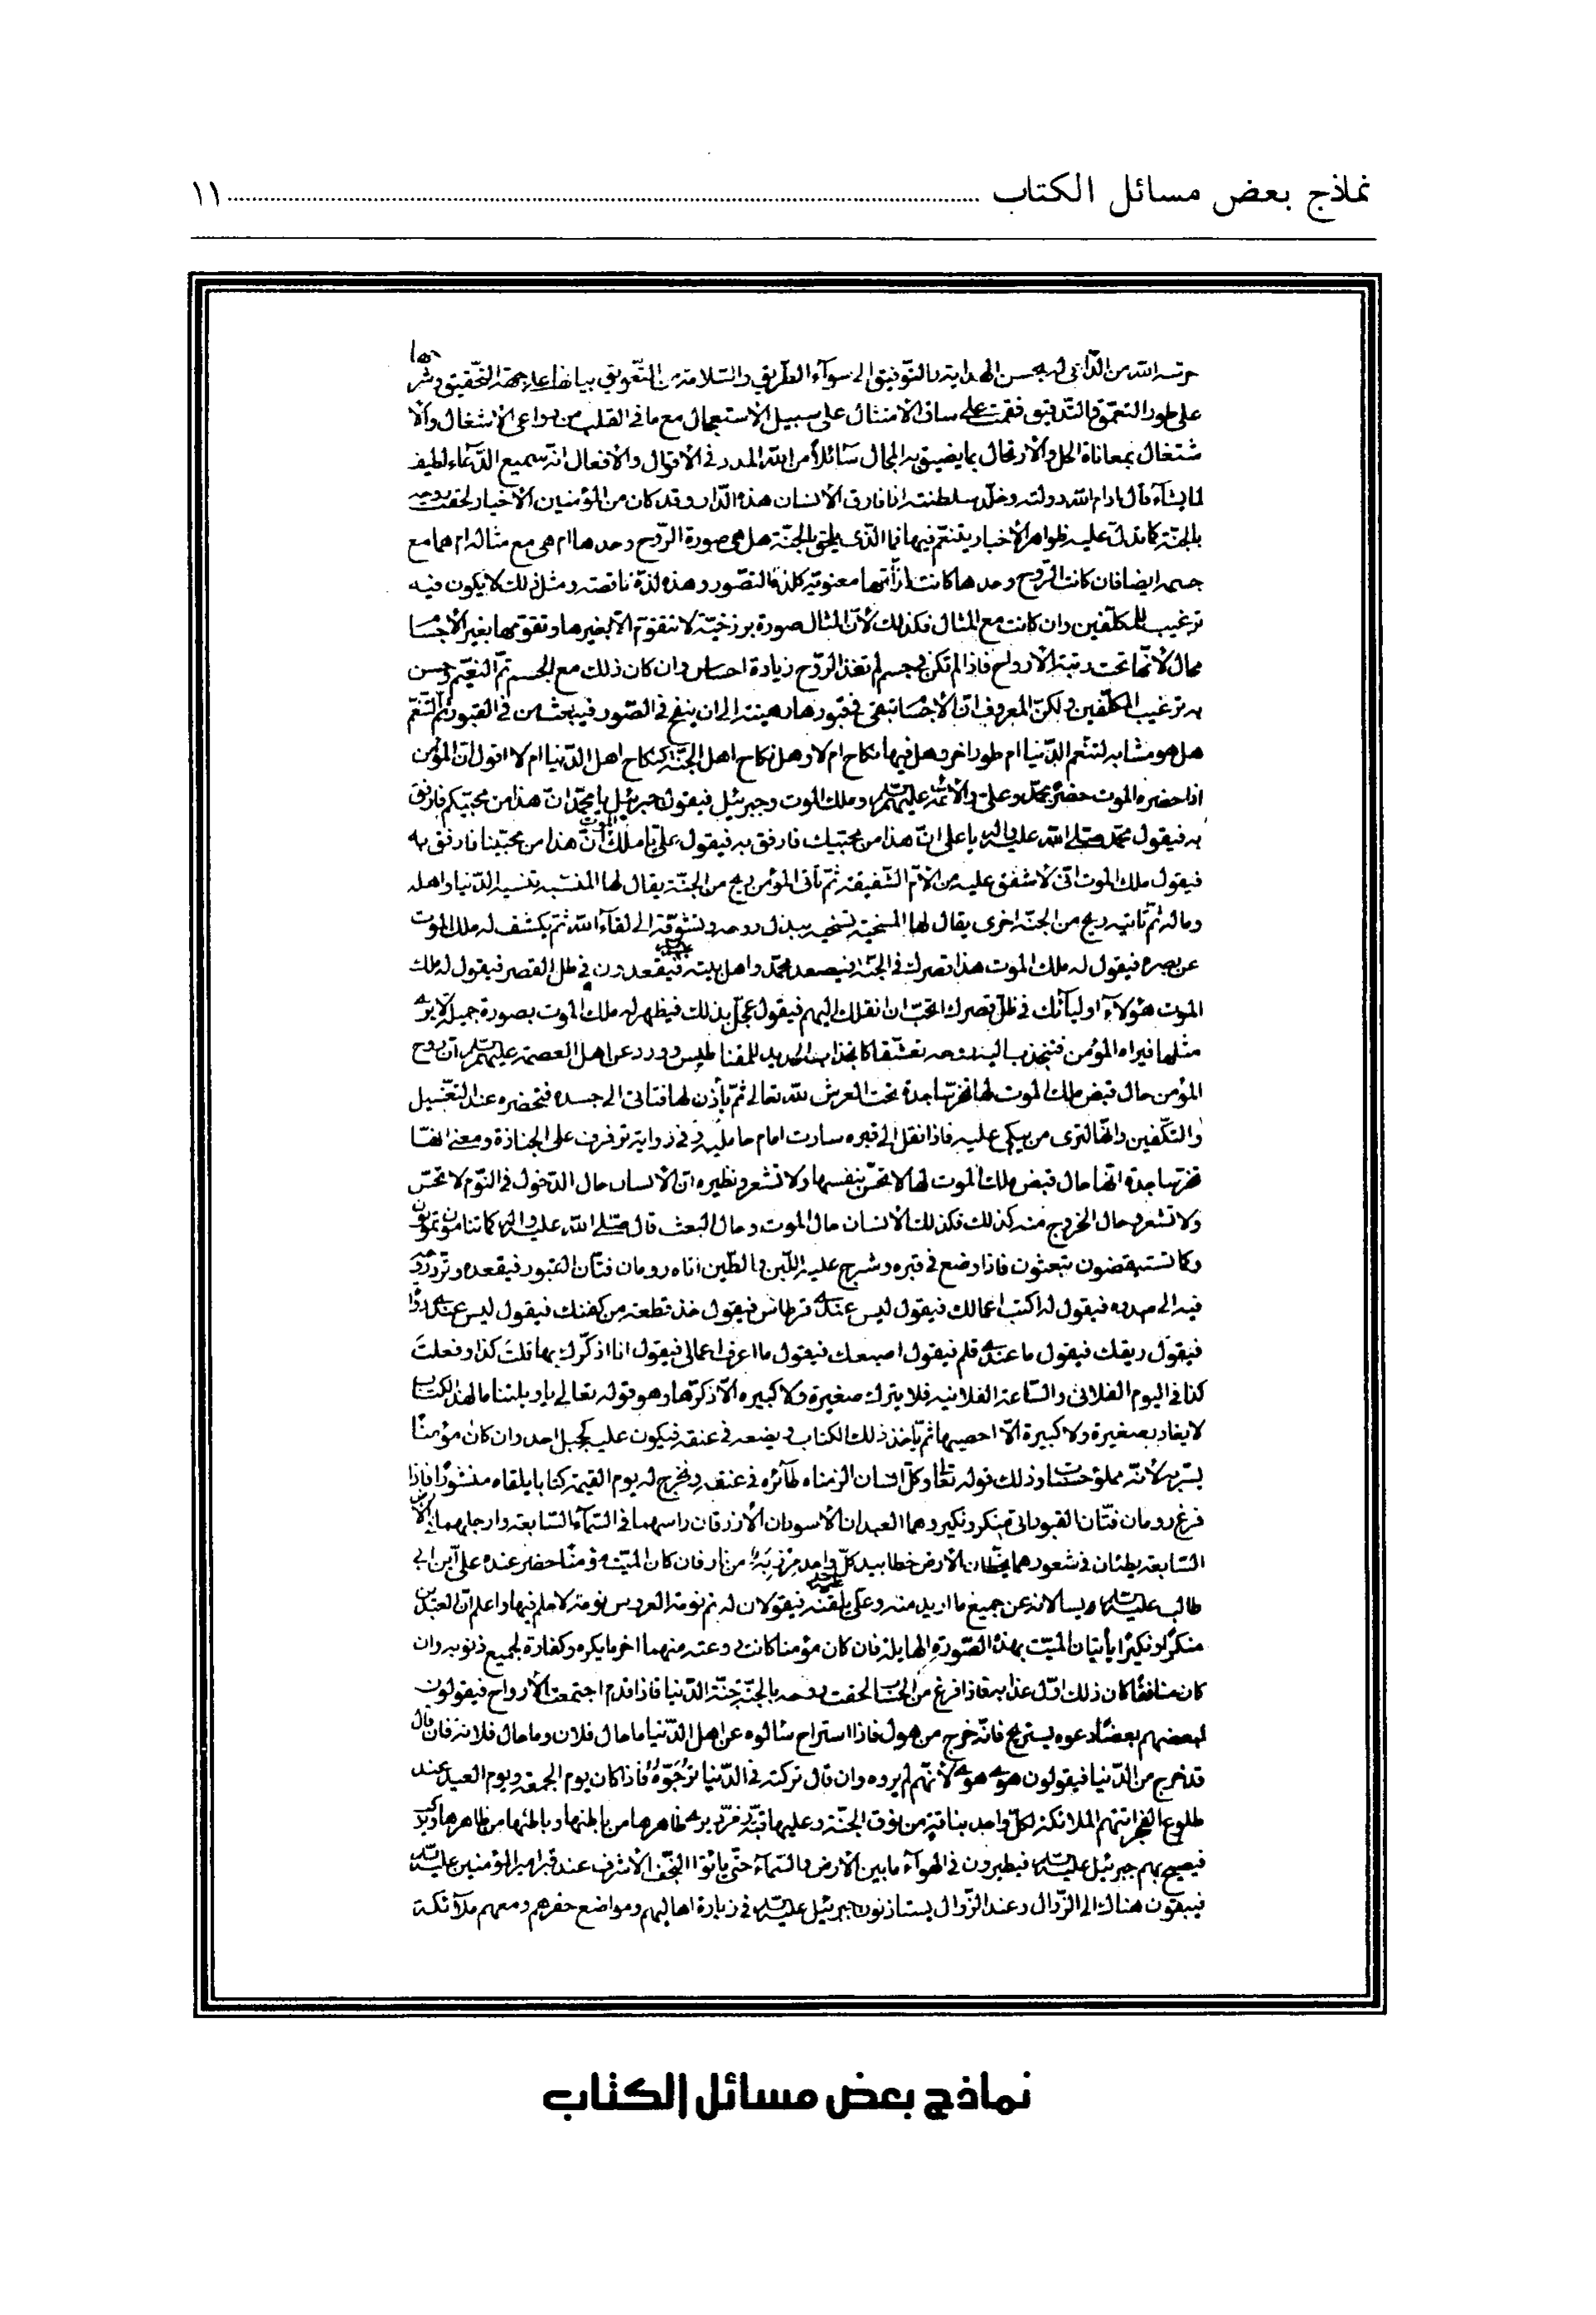 نماذج بعض مسائل الكتاب ........ ١١
حرسه الله من الداعي له بحسن الهداية والتوفيق الى سوآء الطريق والسلامة من التعويق بيانها على جهة التحقيق وشرحها
على طور التعمق والتدقيق فقمت على ساق الامتثال على سبيل الاستعجال مع ما في القلب من دواعي الاشغال والا
شتغال بمعاناة الحل والارتحال بما يضيق به المجال سآئلا من الله المدد في الاقوال والافعال انه سميع الدعاء لطيف
لما يشآء قال ادام الله دولته وخلد سلطنته اذا فارق الانسان هذه الدار وقد كان من المؤمنين الاخيار لحقت روحه
بالجنة كما تدل عليه ظواهر الاخبار يتنعم فيها فما الذي يلحق بالجنة هل هي صورة الروح وحدها ام هي مع مثاله ام هما مع
جسمه ايضا فان كانت الروح وحدها كانت لذاتها معنوية كلذة التصور وهذه لذة ناقصة ومثل ذلك لا يكون فيه
ترغيب للمكلفين وان كانت مع المثال فكذلك لان المثال صورة برزخية لا تتقوم الا بغيرها وتقومها بغير الاجسا
محال لانها تحت رتبة الارواح فاذا لم تكن في جسم لم تفد الروح زيادة احساس وان كان ذلك مع الجسم تم النعيم وحسن
به ترغيب المكلفين ولكن المعروف ان الاجسا تبقى في قبورها رهينة الى ان ينفخ في الصور فيبعث من في القبور ثم التنعم
هل هو مشابه لتنعم الدنيا ام طور اخر وهل فيها نكاح ام لا وهل نكاح اهل الجنة كنكاح اهل الدنيا ام لا اقول ان المؤمن
اذا حضره الموت حضره محمد وعلي والائمة عليهم السلام وملك الموت وجبرئيل فيقول جبرئيل يا محمد ان هذا من محبيكم فارفق
به فيقول محمد صلى الله عليه واله يا علي ان هذا من محبيك فارفق به فيقول علي يا ملك الموت ان هذا من محبينا فارفق به
فيقول ملك الموت اني لاشفق عليه من الام الشفيقة ثم تأتي المؤمن ريح من الجنة يقال لها المنسية تنسيه الدنيا واهله
وماله ثم تاتيه ريح من الجنة اخرى يقال لها المسخية تسخيه ببذل روحه وتشوقه الى لقآء الله ثم يكشف له ملك الموت
عن بصره فيقول له ملك الموت هذا قصرك في الجنة فيصعد محمد واهل بيته فيقعدون في ظل القصر فيقول له ملك
الموت هؤلاء اوليآئك في ظل قصرك اتحب ان انقلك اليهم فيقول عجل بذلك فيظهر له ملك الموت بصورة جميلة لا يرى
مثلها فيراه المؤمن فتنجذب اليه روحه تعشقا كانجذاب الحديد للمقناطيس وورد عن اهل العصمة عليهم السلام ان روح
المؤمن حال قبض ملك الموت لها تخر ساجدة تحت العرش لله تعالى ثم يأذن لها فتاتي الى جسده فتحضره عند التغسيل
والتكفين وانها لترى من يبكي عليه فاذا نقل الى قبره سارت امام حامليه وفي رواية ترفرف على الجنازة ومعنى انها
تخر ساجدة انها حال قبض ملك الموت لها لا تحس بنفسها ولا تشعر ونظيره ان الانسان حال الدخول في النوم لا يحس
ولا تشعر وحال الخروج منه كذلك فكذلك الانسان حال الموت وحال البعث قال صلى الله عليه واله كما تنامون تموتون
وكما تستيقضون تبعثون فاذا وضع في قبره وشرج عليه اللبن والطين اتاه رومان فتان القبور فيقعده وترد روحه
فيه الى صدره فيقول له اكتب اعمالك فيقول ليس عندي قرطاس فيقول خذ قطعة من كفنك فيقول ليس عندي دواة
فيقول ريقك فيقول ما عندي قلم فيقول اصبعك فيقول ما اعرف اعمالي فيقول انا اذكرك بها قلت كذا وفعلت
كذا في اليوم الفلاني والساعة الفلانيه فلا يترك صغيرة ولا كبيره الا ذكرها وهو قوله تعالى يا ويلتنا مال هذا الكتاب
لا يغادر صغيرة ولا كبيرة الا احصيها ثم يأخذ ذلك الكتاب ويضعه في عنقه فيكون عليه كجبل احد وان كان مؤمنا
يسر به لانه مملو حسنات وذلك قوله تعالى وكل انسان الزمناه طآئره في عنقه ونخرج له يوم القيمة كتابا يلقاه منشورا فاذا
فرغ رومان فتان القبور اتى منكر ونكير وهما العبدان الاسودان الازرقان راسهما في السمآء السابعة وارجلهما في الارض
السابعة يطئان في شعورهما يخطان الارض خطا بيد كل واحد مرزبة من نار فان كان الميت مؤمنا حضر عنده علي ابن ابي
طالب عليه السلام ويسالانه عن جميع ما اريد منه وعلي يلقنه فيقولان له نم نومة العروس نومة لا حلم فيها واعلم ان العبدين
منكرا ونكيرا يأتيان الميت بهذه الصورة الهايلة فان كان مؤمنا كانت روعته منهما اخر ما يكره وكفارة لجميع ذنوبه وان
كان منافقا كان ذلك اول عذابه فاذا فرغ من الحساب لحقت روحه بالجنة جنة الدنيا فاذا قدم اجتمعت الارواح فيقولون
لبعضهم بعضا دعوه يستريح فانه خرج من هول فاذا استراح سالوه عن اهل الدنيا ما حال فلان وما حال فلانة فان قال
قد خرج من الدنيا فيقولون هوى هوى لانهم لم يروه وان قال تركته في الدنيا ترجوه فاذا كان يوم الجمعة ويوم العيد عند
طلوع الفجر اتتهم الملائكة لكل واحد بناقة من نوق الجنة وعليها قبة من زبرجد يرى ظاهرها من باطنها وباطنها من ظاهرها
فيصيح بهم جبرئيل عليه السلام فيطيرون في الهوآء ما بين الارض والسمآء حتى ياتوا النجف الاشرف عند قبر امير المؤمنين عليه السلام
فيبقون هناك الى الزوال وعند الزوال يستاذنون جبرئيل عليه السلام في زيارة اهاليهم ومواضع حفرهم ومعهم ملآئكة
نماذج بعض مسائل الكتاب